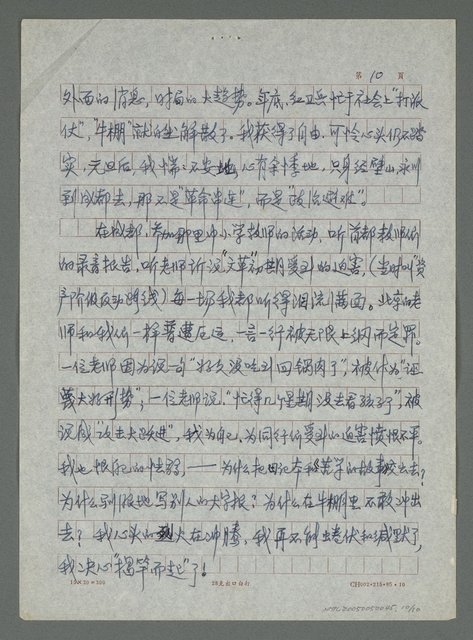 第 10 頁
外面的消息，时局的大趋势。年底，红卫兵忙于社会上"打派
仗"，"牛棚"就自然解散了。我获得了自由，可怜心头仍不踏
实，元旦后，我惴惴不安地心有余悸地，只身经璧山永川
到成都去，那不是"革命串连"，而是"政治避难"。
在成都，参加那里中小学教师的活动，听首都教师们
的录音报告，听老师诉说"文革"初期受到的迫害，（当时叫"资
产阶级反动路线）每一场我都听得泪流满面。北京的老
师和我们一样普遭厄运，一言一行被无限上纲而定罪。
一位老师因为说一句"好久没吃到回锅肉了"，被作为"诬
蔑大好形势"；一位老师说，"忙得几星期没去看孩子"，被
说成"攻击大跃进"，我为自己，为同行们受到的迫害愤恨不平。
我也恨自己的怯弱，——为什么把日记本和 的故事交出去？
为什么 写别人的大字报？为什么在牛棚里不敢冲出
去？我心头的烈火在沸腾，我再不能蛰伏和缄默了，
我决心"揭竿而起"了！
15×20=300
28克出口白打
CH002·215·85·10
NMTL20050050045, 10/20